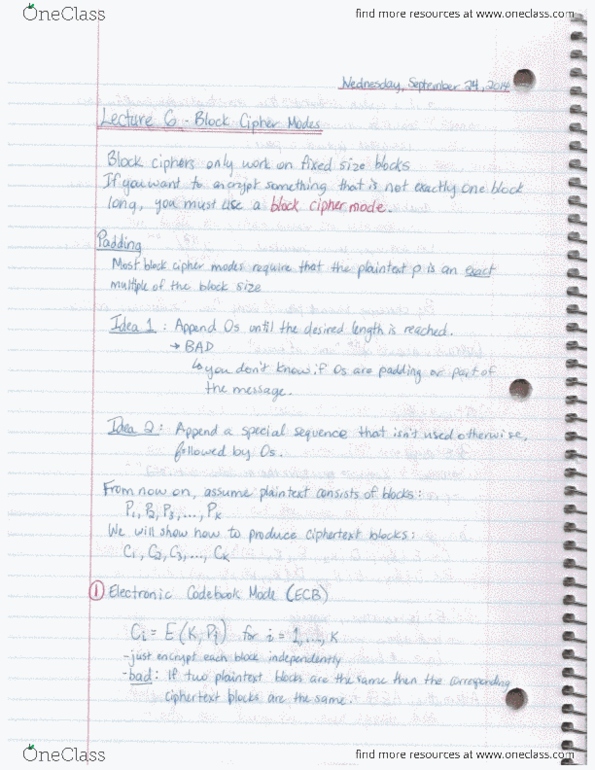 OneClass
find more resources at www.oneclass.com
Wednesday, September 24, 2014
Lecture 6 - Block Cipher Modes
Block ciphers only work on fixed size blocks
If you want to encrypt something that is not exactly one block
long, you must use a block cipher mode.
Padding
Most block cipher modes require that the plaintext p is an exact
multiple of the block size
Idea 1: Append 0s until the desired length is reached.
→ BAD
↳ you don't know if 0s are padding or part of
the message.
Idea 2: Append a special sequence that isn't used otherwise,
followed by 0s.
From now on, assume plaintext consists of blocks:
P₁, P₂, P₃, ..., Pₖ
We will show how to produce ciphertext blocks:
C₁, C₂, C₃, ..., Cₖ
① Electronic Codebook Mode (ECB)
Cᵢ = E(K, Pᵢ) for i = 1, ..., k
- just encrypt each block independently
- bad: If two plaintext blocks are the same then the corresponding
ciphertext blocks are the same.
OneClass
find more resources at www.oneclass.com